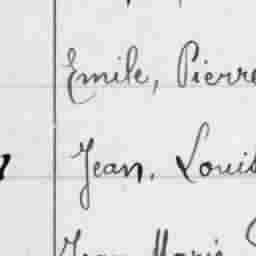 Emile, Pierre
Jean, Louis
Jean Marie